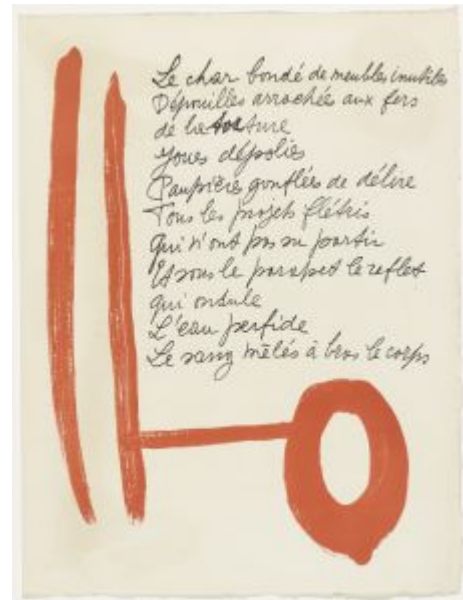 Le char bondé de meubles inutiles
Dépouilles arrachées aux fers
de la torture
Joues dépolies
Paupières gonflées de délire
Tous les projets flétris
Qui n'ont pas pu partir
Et sous le parapet le reflet
qui ondule
L'eau perfide
Le sang mêlés à bras le corps